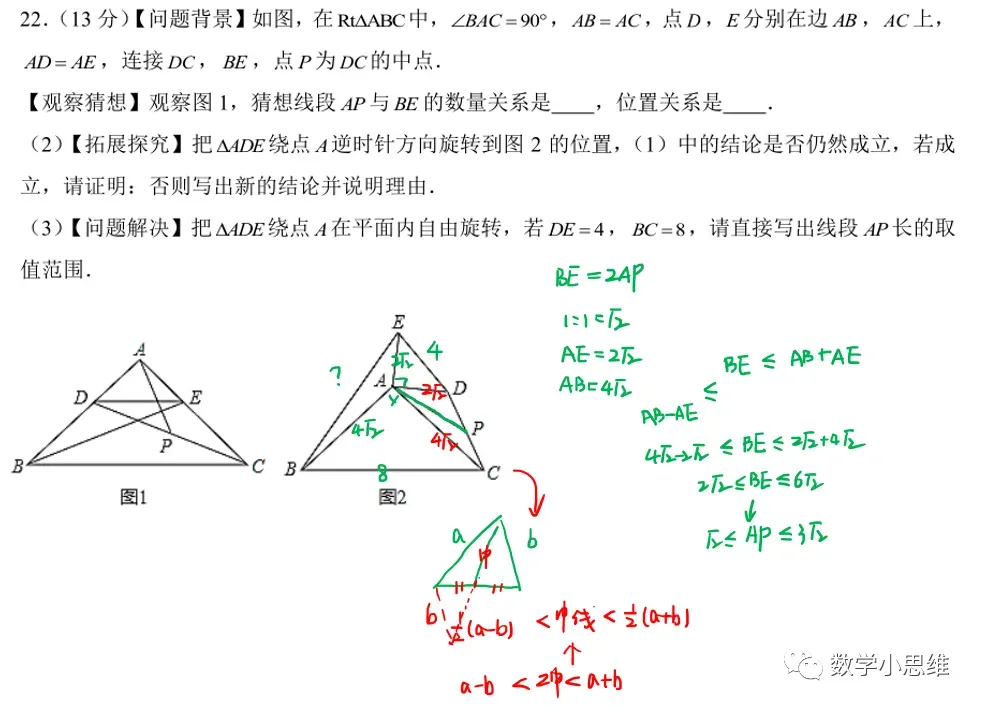 22.(13 分)【问题背景】如图,在 RtΔABC 中,∠BAC = 90°,AB = AC,点 D,E 分别在边 AB,AC 上,
AD = AE,连接 DC,BE,点 P 为 DC 的中点.
【观察猜想】观察图 1,猜想线段 AP 与 BE 的数量关系是____,位置关系是____.
(2)【拓展探究】把 ΔADE 绕点 A 逆时针方向旋转到图 2 的位置,(1)中的结论是否仍然成立,若成
立,请证明:否则写出新的结论并说明理由.
(3)【问题解决】把 ΔADE 绕点 A 在平面内自由旋转,若 DE = 4,BC = 8,请直接写出线段 AP 长的取
值范围.
BE = 2AP
1:1:√2
AE = 2√2
AB = 4√2
BE ≤ AB + AE
≤
AB - AE
4√2 - 2√2 ≤ BE ≤ 2√2 + 4√2
2√2 ≤ BE ≤ 6√2
↓
√2 ≤ AP ≤ 3√2
A
D
E
P
B
C
图1
E
2√2
4
?
A
2√2
D
4√2
4√2
P
B
8
C
图2
a
b
中
b
½(a-b) < 中线 < ½(a+b)
↑
a-b < 2中 < a+b
数学小思维